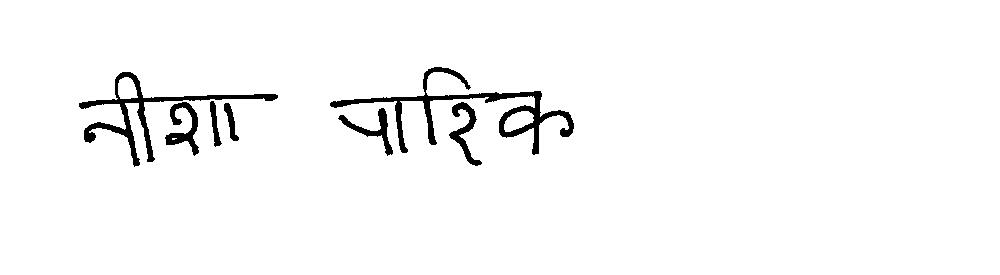 नीशा पारिक